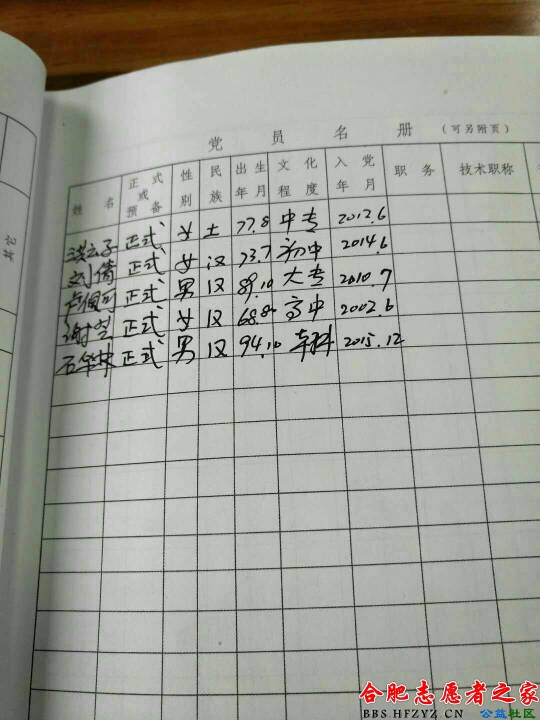 党员名册（可另附页）
姓名 正式或预备 性别 民族 出生年月 文化程度 入党年月 职务 技术职称
其它
洪云子 正式 女 土 77.8 中专 2012.6
刘倩 正式 女 汉 73.7 初中 2014.6
正式 男 汉 89.10 大专 2010.7
正式 女 汉 68.8 高中 2002.6
正式 男 汉 94.10 本科 2015.12
合肥志愿者之家
BBS.HFZYZ.CN 公益社区